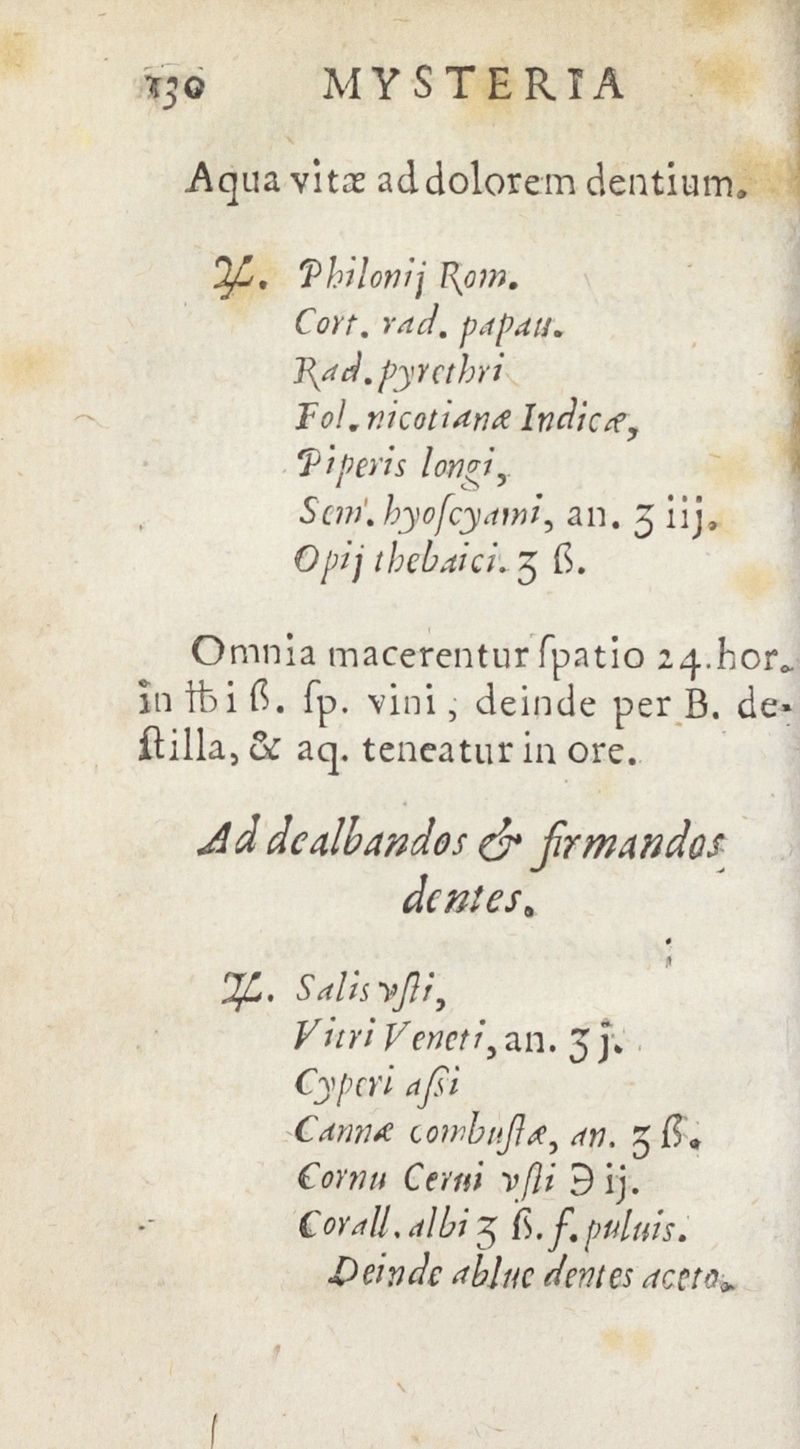 130 MYSTERIA
Aqua vitæ ad dolorem dentium.
♃. Philonij Rom.
Cort. rad. papau.
Rad. pyrethri
Fol. nicotianæ Indicæ,
Piperis longi,
Sem. hyoſcyami, an. ʒ iij.
Opij thebaici. ʒ ß.
Omnia macerentur ſpatio 24. hor.
in ℔ i ß. ſp. vini, deinde per B. de-
ſtilla, & aq. teneatur in ore.
Ad dealbandos & firmandos
dentes.
♃. Salis vſti,
Vitri Veneti, an. ʒ j.
Cyperi aſsi
Cannæ combuſtæ, an. ʒ ß.
Cornu Cerui vſti ℈ ij.
Corall. albi ʒ ß. f. puluis.
Deinde ablue dentes aceto.